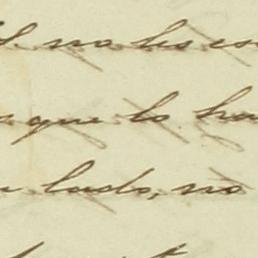 no les es
que lo ha
lado, no